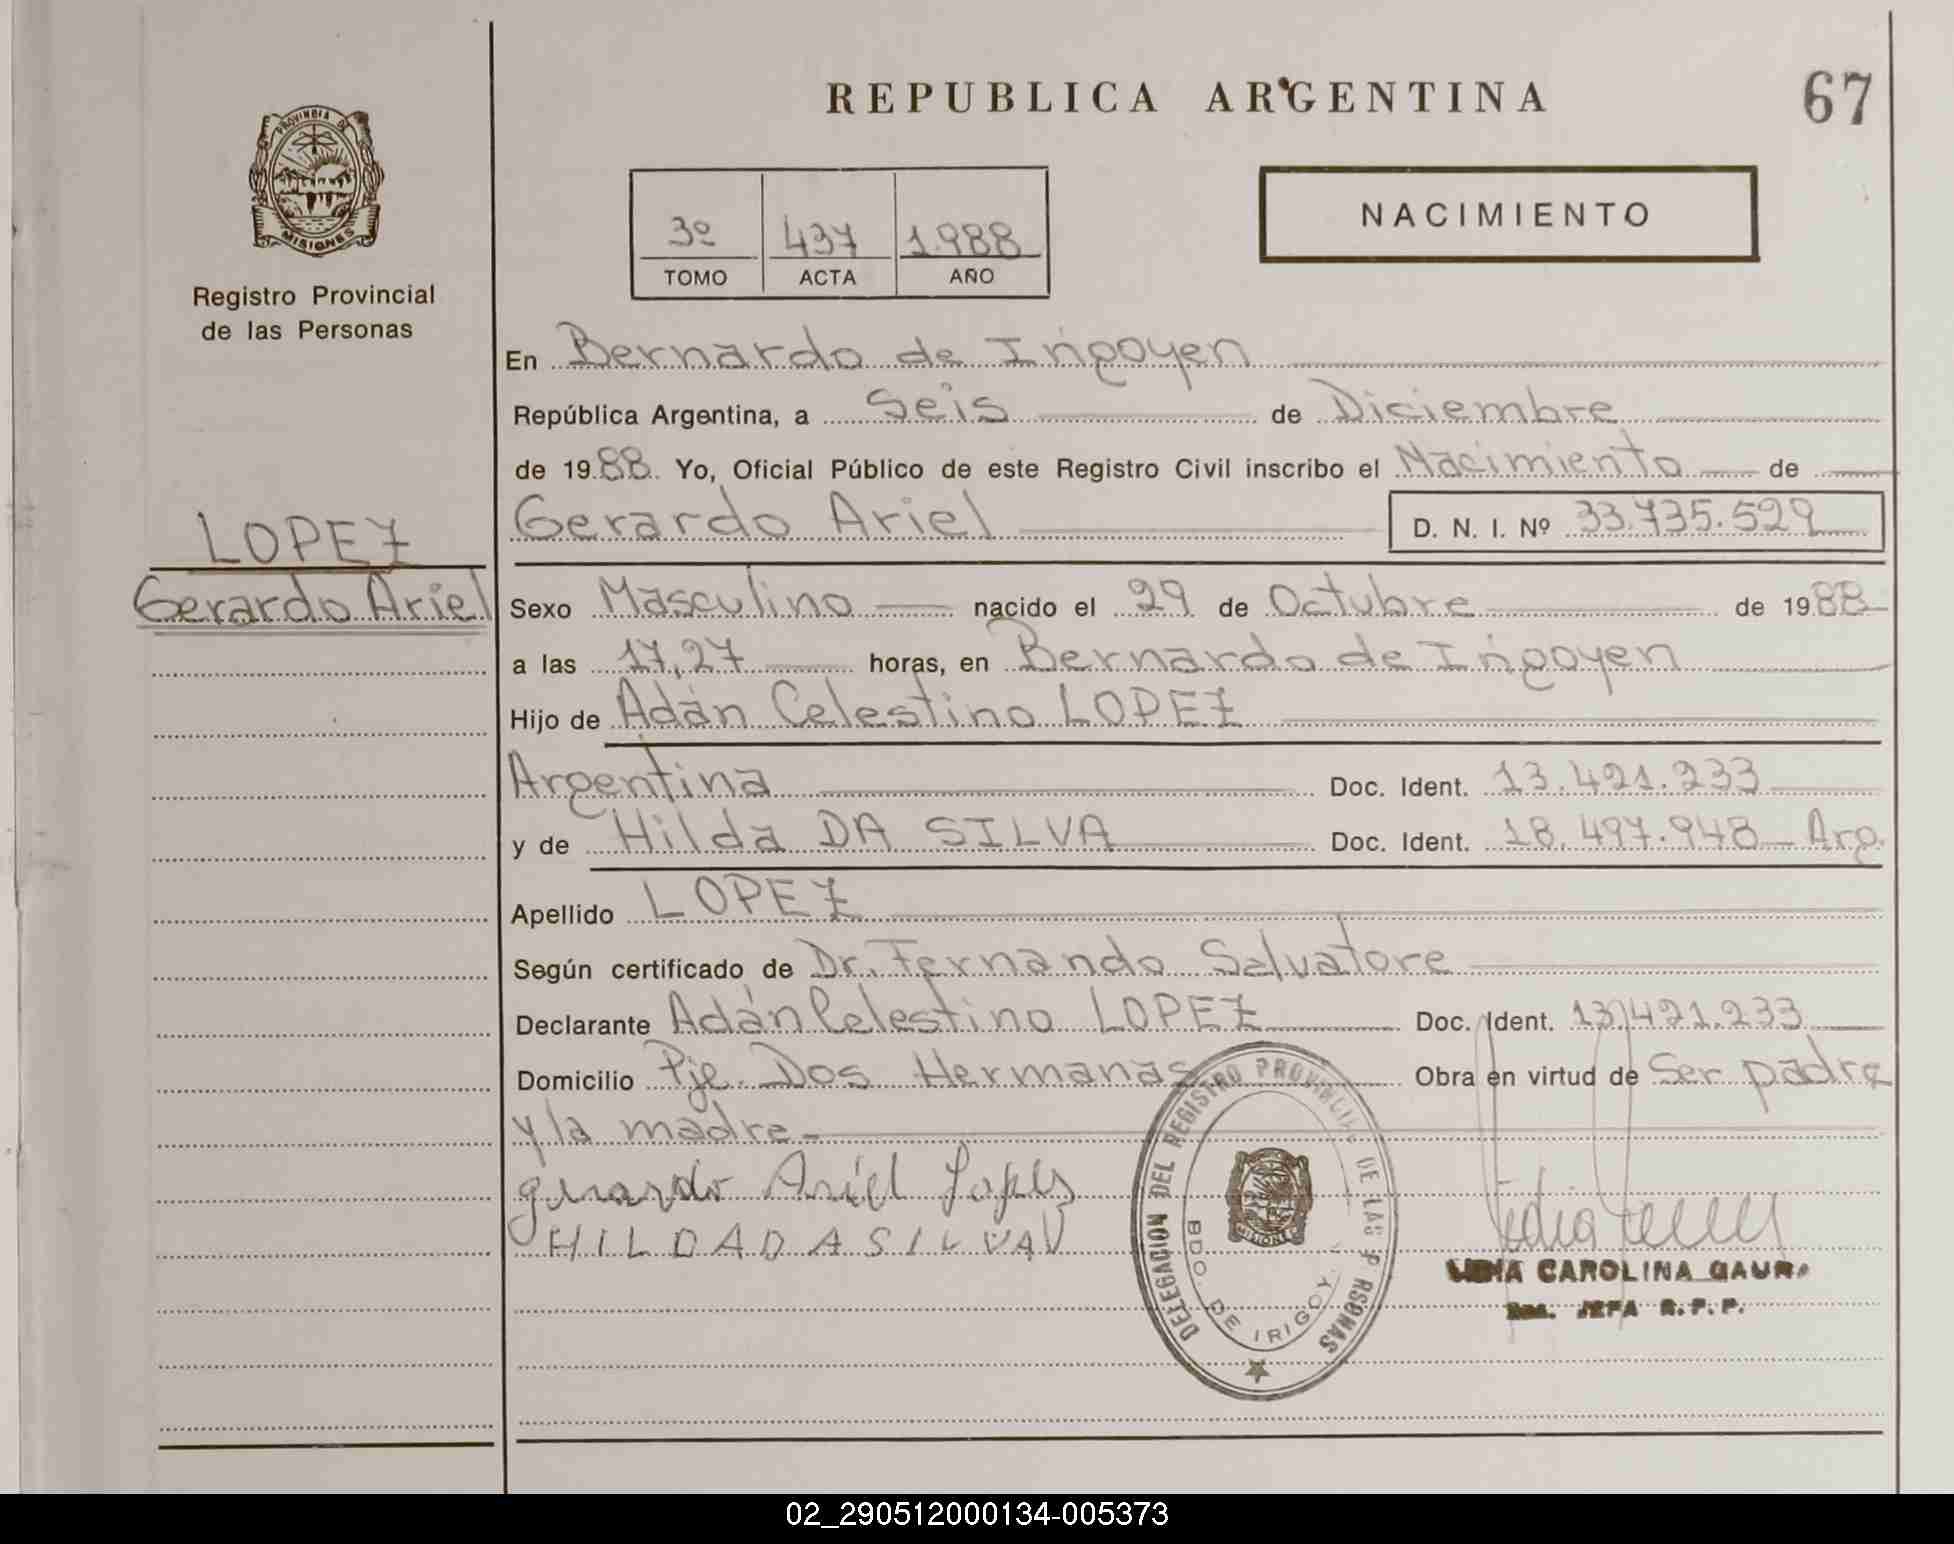 REPUBLICA ARGENTINA
67
PROVINCIA DE
MISIONES
Registro Provincial
de las Personas
3º 437 1.988
TOMO ACTA AÑO
NACIMIENTO
En Bernardo de Irigoyen
República Argentina, a Seis de Diciembre
de 1988 Yo, Oficial Público de este Registro Civil inscribo el Nacimiento de
LOPEZ
Gerardo Ariel
Gerardo Ariel D. N. I. Nº 33.735.529
Sexo Masculino nacido el 29 de Octubre de 1988
a las 17,27 horas, en Bernardo de Irigoyen
Hijo de Adán Celestino LOPEZ
Argentina Doc. Ident. 13.421.233
y de Hilda DA SILVA Doc. Ident. 18.497.948 Arg.
Apellido LOPEZ
Según certificado de Dr. Fernando Salvatore
Declarante Adán Celestino LOPEZ Doc. Ident. 13.421.233
Domicilio Pje. Dos Hermanas Obra en virtud de Ser padre
y la madre.-
gerardo Ariel Lopez
HILDA DA SILVA
DELEGACION DEL REGISTRO PROVINCIAL DE LAS P RSONAS
BDO. DE IRIGOY
MISIONES
CAROLINA
JEFA R. P. P.
02_290512000134-005373